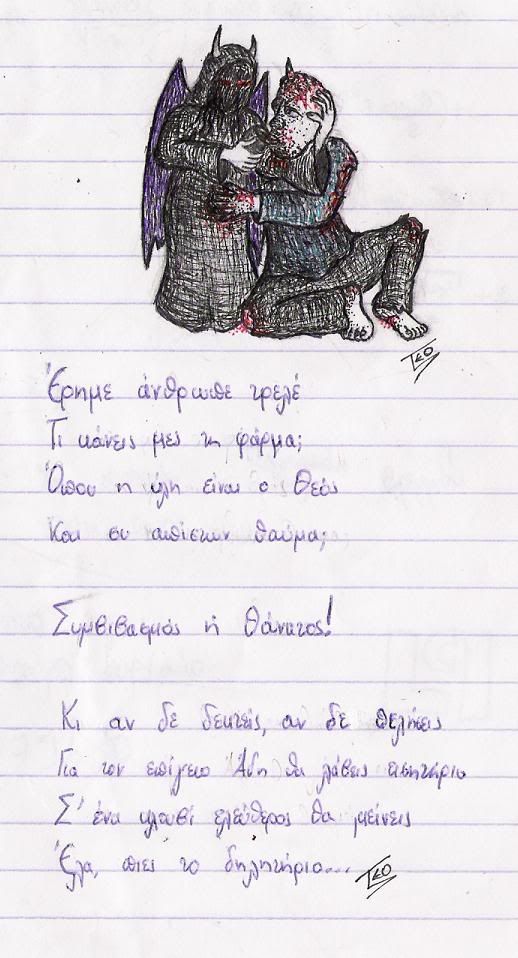 Τεο
Έρημε άνθρωπε τρελέ
Τι κάνεις μες τη φάρμα;
Όπου η ύλη είναι ο Θεός
Και συ απίστων θαύμα;
Συμβιβασμός ή Θάνατος!
Κι αν δε δεκτείς, αν δε θελήσεις
Για τον επίγειο Άδη θα λάβεις εισητήριο
Σ' ένα κλουβί ελεύθερος θα μείνεις
Έλα, πιες το δηλητήριο... Τεο